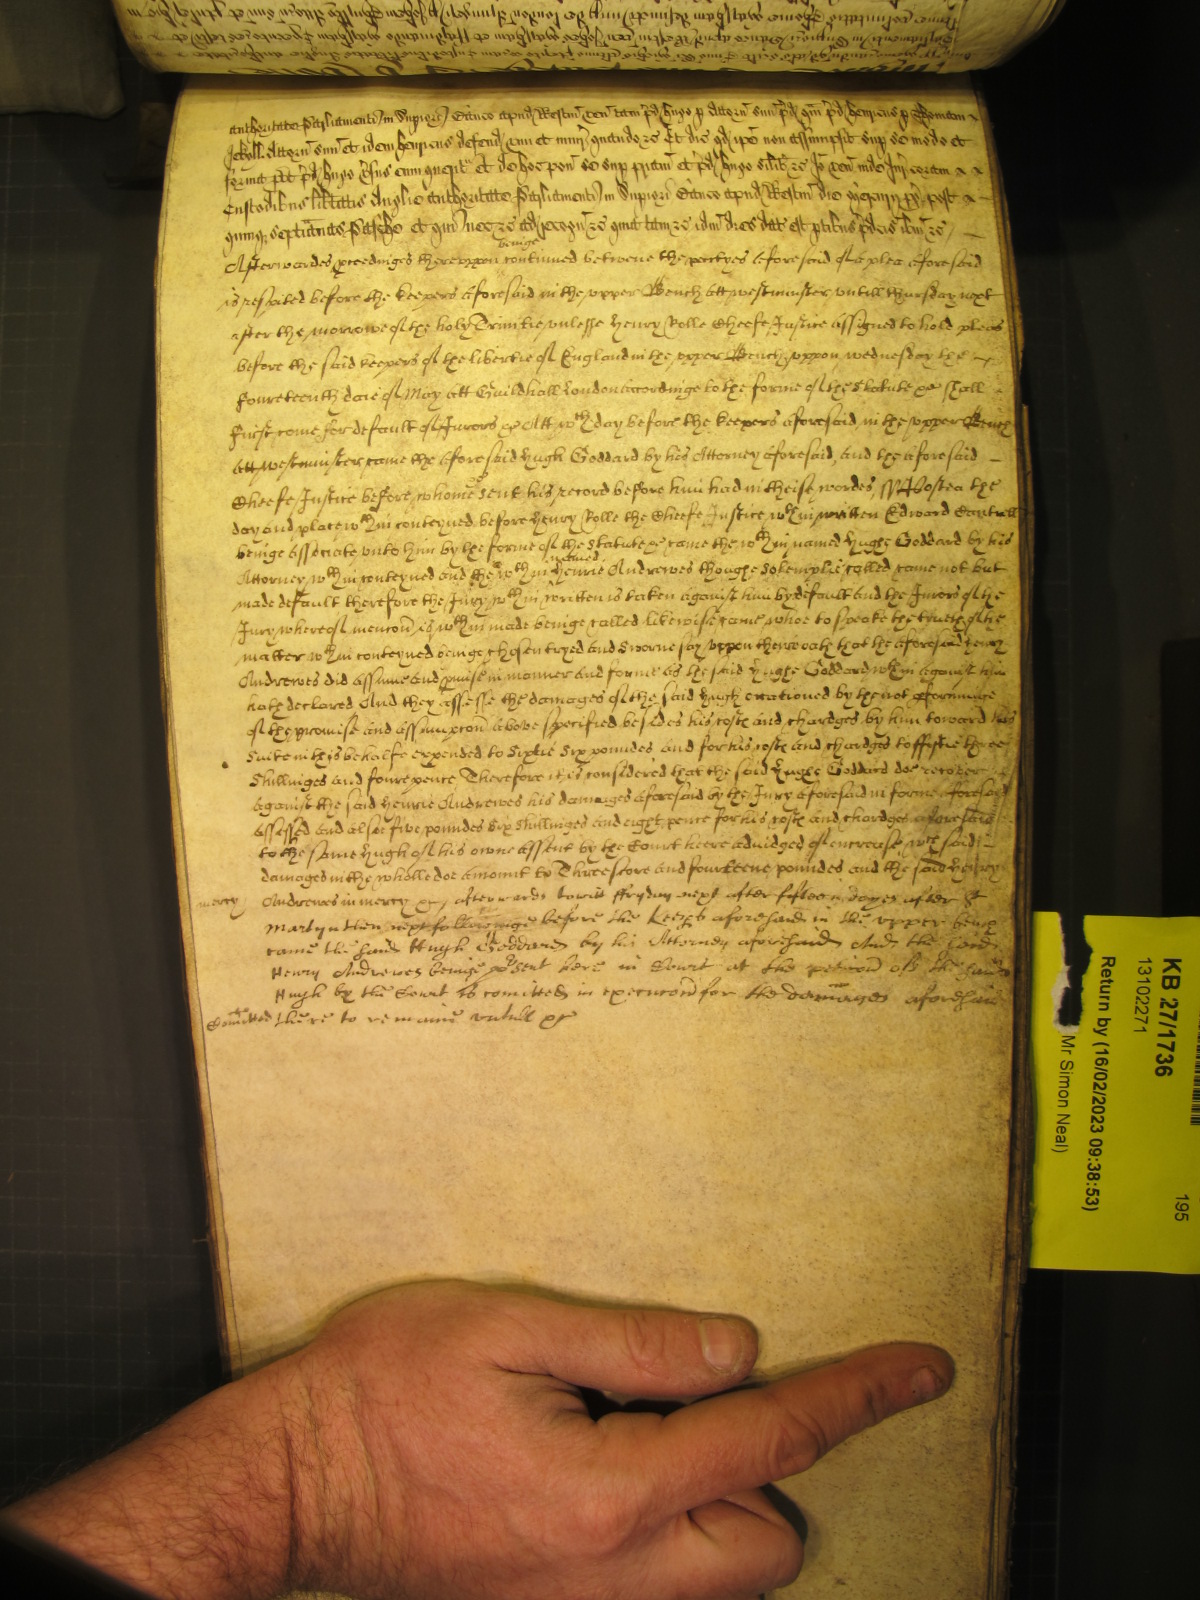 authoritate Parliamenti in Superiori Banco apud Westm
Jekyll Attorn suu et idem Henricus defend vim et iniur quando &c Et dic qd ipe non assumpsit sup se modo et
forma put pd Hugo vsus eum querit et de hoc pon se sup priam et pd Hugo silit &c Io ven inde Jur coram
Custodibus libtatis Anglie authoritate Parliamenti in Superiori Banco apud Westm die
quinq septimanas Pasche et qui nec &c ad recogn &c quia tam &c idm dies dat est ptibus pdcis ibm &c
beinge
Afterwardes proceedinges thereuppon continued betweene the partyes aforesaid of a plea aforesaid
is respited before the Keepers aforesaid in the upper Bench att Westminster untill Thursday next
after the morrowe of the holy Trinitie unlesse Henry Rolle Cheefe Justice assigned to hold pleas
before the said Keepers of the libertie of England in the upper Bench uppon wednesday the
fourteenth daie of May att Guildhall London accordinge to the forme of the Statute &c shall
first come for default of Jurors &c Att wch day before the Keepers aforesaid in the upper Bench
att Westminster came the aforesaid Hugh Goddard by his Attorney aforesaid, and the aforesaid
Cheefe Justice before whome &c sent his record before him had in theise wordes, ss Postea the
day and place wthin conteyned before Henry Rolle the Cheefe Justice wthin written Edward
beinge associate unto him by the forme of the Statute &c came the wthin named Hughe Goddard by his
named
Attorney wthin conteyned and the wthin Henrie Andrewes thoughe solemplie called came not but
made default therefore the Jury wthin written is taken against him by default and the Jurors of the
Jury whereof mencon is wthin made beinge called likewise came whoe to speake the trueth of the
matter wthin conteyned beinge chosen tryed and sworne say uppon their oath that the aforesaid Henry
Andrewes did assume and promise in manner and forme as the said Hughe Goddard wthin against him
hath declared And they assesse the damages of the said Hugh occationed by the not pforminge
of the promise and assumpcon above specified besides his costs and chardges by him toward his
suite in this behalfe expended to Sixtie Six poundes and for his costs and chardges to fiftie three
shillinges and foure pence Therefore it is considered that the said Hughe Goddard doe recover
against the said Henrie Andrewes his damages aforesaid by the Jury aforesaid in forme aforesaid
assessed and alsoe five poundes Six shillinges and eight pence for his costs and chardges aforesaid
to the same Hugh of his owne assent by the Court heere adiudged of encrease wch said
damages in the wholle doe amount to Threescore and fourteene poundes and the said Henry
mercy Andrewes in mercy &c, afterwards towitt ffryday next after fifteen dayes after St
Martyn then next followinge before the Keeps aforesaid in the upper bench
came the said Hugh Goddard by his Attorney aforesaid And the said
Henry Andrewes beinge psent here in Court at the peticon off the said
Hugh by the Court is comitted in execucon for the damages aforesaid
Comitted there to remaine untill &c
KB 27/1736
13102271
195
Return by (16/02/2023 09:38:53)
Mr Simon Neal)